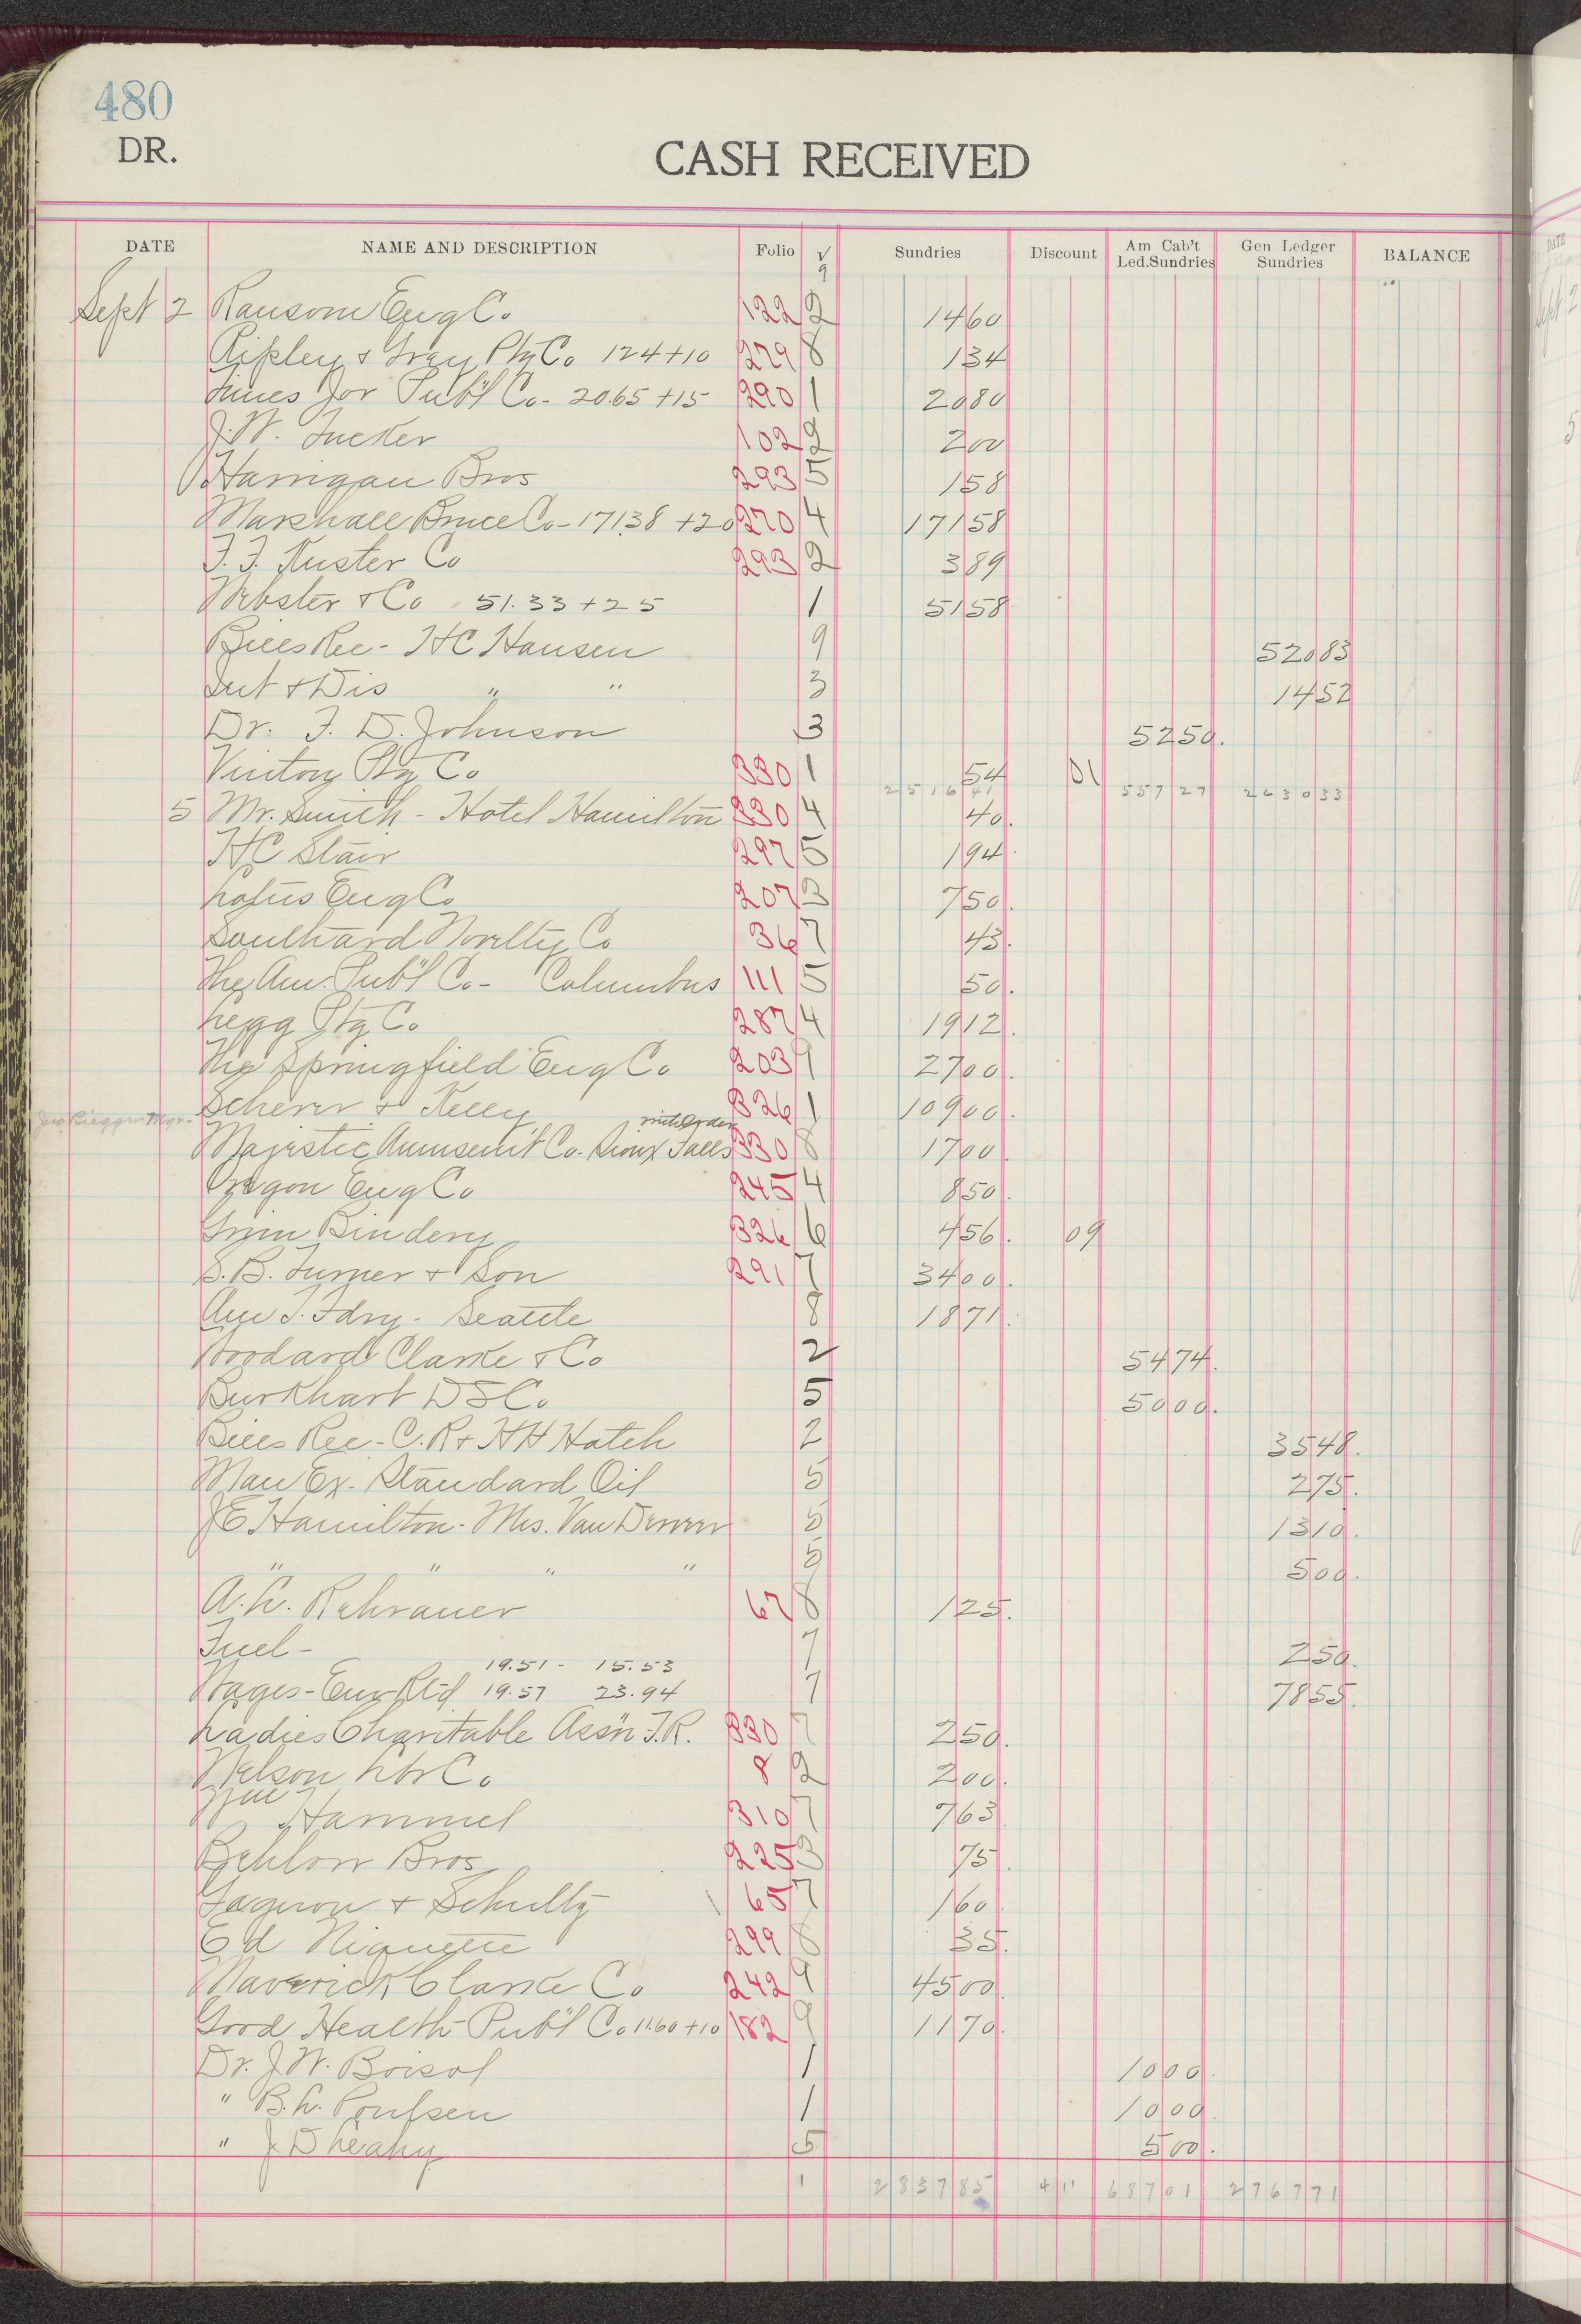 480
DR.
CASH RECEIVED
DATE NAME AND DESCRIPTION Folio √ Sundries Discount Am Cab't Led.Sundries Gen Ledger Sundries BALANCE
9
Sept 2 Ransom Eng Co. 122 2 1460
Ripley & Gray Ptg Co 124+10 279 8 134
Times Jor Pub'l Co- 20.65 +15 290 1 2080
J.W. Tucker 102 2 200
Harrigan Bros 293 5 158
Marshall Bruce Co- 171.38 +20 270 4 17158
F.F. Kuster Co 293 2 389
Webster & Co 51.33+25 1 5158
Bills Rec- HC Hansen 9 52083
Int & Dis " " 3 1452
Dr. F. D. Johnson 3 5250.
Vinton Ptg Co 330 1 54 01
251641 55727 263033
5 Mr. Smith - Hotel Hamilton 330 4 40.
HC Stair 297 5 194
Loftus Eng Co 207 3 750.
Southard Novelty Co 36 7 43.
The Am. Pub'l Co- Columbus 111 5 50.
Legg Ptg Co. 287 4 1912.
The Springfield Eng Co 203 9 2700.
Scherer & Kelly 326 1 10900.
Jno Piegger Mgr. Majestic Amusem't Co- Sioux Falls with order 330 8 1700.
Oregon Eng Co 245 4 850.
Grim Bindery 326 6 456. 09
S.B. Turner & Son 291 7 3400.
Am T. Fdry- Seattle 8 1871.
Woodard Clarke & Co 2 5474.
Burkhart DS Co. 5 5000.
Bills Rec- C.R & HH Hatch 2 3548.
Man Ex. Standard Oil 5 275.
JE Hamilton- Mrs. Van 5 1310.
" " " " 5 500.
A.L. Rahrauer 67 8 125.
Fuel- 7 250.
19.51 - 15.53
Wages- Eng 19.57 23.94 7 7855.
Ladies Charitable Ass'n T.R. 330 7 250.
Nelson Lbr Co. 8 2 200.
Wm Hammel 310 7 763
Behlow Bros 225 3 75.
Gagnon & Schultz 65 7 160
Ed Niquette 299 8 35.
Maverick Clarke Co 242 9 4500.
Good Health Pub'l Co 11.60 +10 182 9 1170.
Dr. J.W. Boisol 1 1000.
" B.L. Poulsen 1 1000.
" J D Leahy 5 500.
1 283785 411 68701 276771